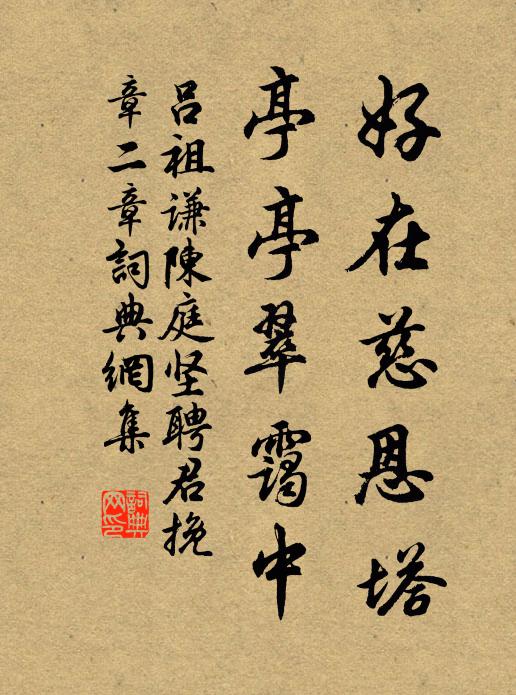 好在慈恩塔
亭亭翠靄中
吕祖谦陳庭坚聘君挽
章二章詞典網集
詞典網印